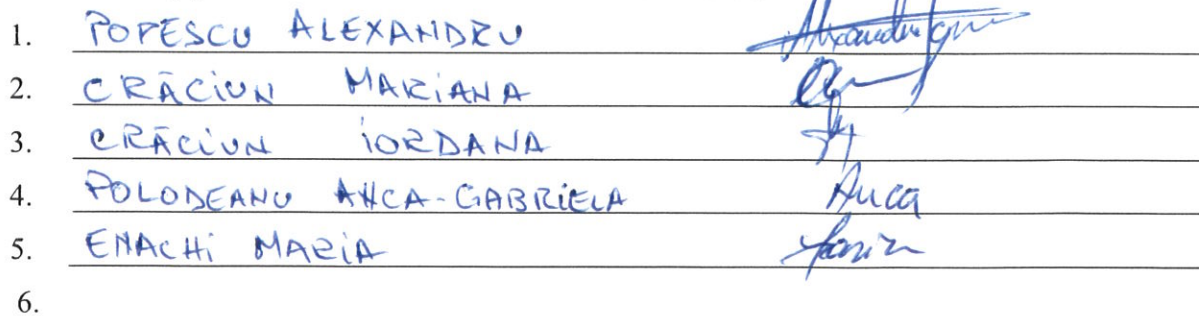 1. POPESCU ALEXANDRU
2. CRĂCIUN MARIANA
3. CRĂCIUN IORDANA
4. POLODEANU ANCA-GABRIELA Anca
5. ENACHI MARIA
6.